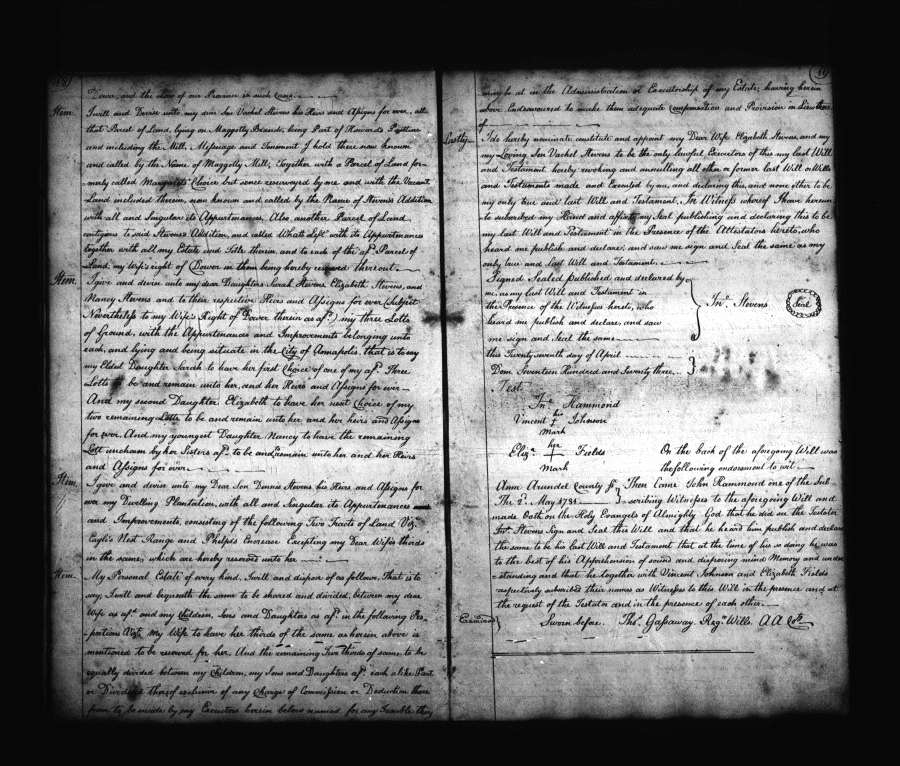 Dower, and the Law of our Province in such Cases.
Item. I will and Devise unto my dear Son Vachel Stevens his Heirs and Assigns for ever, all
that Parcel of Land, lying on Maggotty Branch, being Part of Howards
and including the Mill, Messuage and Tenement I hold there now known
and called by the Name of Maggotty Mill, Together with a Parcel of Land for-
merly called Margaret's Choice but since resurveyed by me and with the Vacant
Land included therein, now known and called by the Name of Stevens Addition
with all and Singular its Appurtenances, Also another Parcel of Land
contiguous to said Stevens Addition, and called Whats Left with its Appurtenances
together with all my Estate and Title therein, and to each of the afd. Parcels of
Land, my Wife's right of Dower in them being hereby reserved thereout.
Item. I give and devise unto my dear Daughters Sarah Stevens Elizabeth Stevens, and
Nancy Stevens and to their respective Heirs and Assigns for ever (Subject
Nevertheless to my Wife's Right of Dower therein as afd.) my three Lotts
of Ground, with the Appurtenances and Improvements belonging unto
each, and lying and being situate in the City of Annapolis, that is to say
my Eldest Daughter Sarah to have her first Choice of one of my afd. Three
Lotts to be and remain unto her, and her Heirs and Assigns for ever
And my second Daughter Elizabeth to have her next Choice of my
two remaining Lotts to be and remain unto her and her heirs and Assigns
for ever. And my youngest Daughter Nancy to have the remaining
Lott unchosen by her Sisters afd. to be and remain unto her and her Heirs
and Assigns for ever
Item. I give and devise unto my Dear Son Dennis Stevens his Heirs and Assigns for
ever my Dwelling Plantation, with all and Singular its Appurtenances
and Improvements, consisting of the following Two Tracts of Land Viz.
Eagle's Nest Range and Phelps's Encrease Excepting my Dear Wifes thirds
in the same, which are hereby reserved unto her
Item. My Personal Estate of every kind, I will and dispose of as follows. That is to
say, I will and bequeath the same to be shared and divided, between my dear
Wife as afd. and my Children, Sons and Daughters as afd. in the following Pro-
portions Vizt. My Wife to have her thirds of the same as herein above is
mentioned to be reserved for her. And the remaining Two thirds of same to be
equally divided between my Children, my Sons and Daughters afd. each alike Part
or Dividend thereof exclusive of any Charge of Commission or Deduction there
from to be made by my Executors herein below named, for any Trouble they
49
may be at in the Administration or Executorship of my Estate; having herein
above Endeavoured to make them adequate compensation and Provision in Lieu there
of
Lastly I do hereby nominate constitute and appoint my Dear Wife Elizabeth Stevens, and my
my Loving Son Vachel Stevens to be the only lawful Executors of this my last Will
and Testament hereby revoking and annulling all other or former last Will or Wills
and Testaments made and Executed by me, and declaring this, and none other to be
my only true and last Will and Testament, In Witness whereof I have hereun
to subscribed my Hand and affixed my Seal publishing and declaring this to be
my last Will and Testament in the Presence of the Attestators hereto, who
heard me publish and declare, and saw me sign and Seal the same as my
only true and last Will and Testament.
Signed Sealed published and declared by
me, as my last Will and Testament in
the Presence of the Witnesses hereto, who
heard me publish and declare, and saw
me sign and Seal the same
Jno. Stevens Seal
this Twenty seventh day of April
Dom. Seventeen Hundred and Seventy three
Test
Jno. Hammond
his
Vincent + Johnson
Mark
her
Eliza. + Fields
Mark
On the back of the aforegoing Will was
the following endorsement to wit
Ann Arundel County Sc. Then Came John Hammond one of the Sub-
The 2d. May 1781 scribing Witnesses to the aforegoing Will and
made Oath on the Holy Evangels of Almighty God that he did see the Testator
Jno. Stevens Sign and Seal this Will and that he heard him publish and declare
the same to be his last Will and Testament that at the time of his so doing he was
to the best of his Apprehension of sound and disposing mind Memory and under
standing and that he together with Vincent Johnson and Elizabeth Fields
respectively subscribed their names as Witnesses to this Will in the presence and at
the request of the Testator and in the presence of each other.
Examined Sworn before. Tho. Gassaway. Regr. Wills. A A Coty